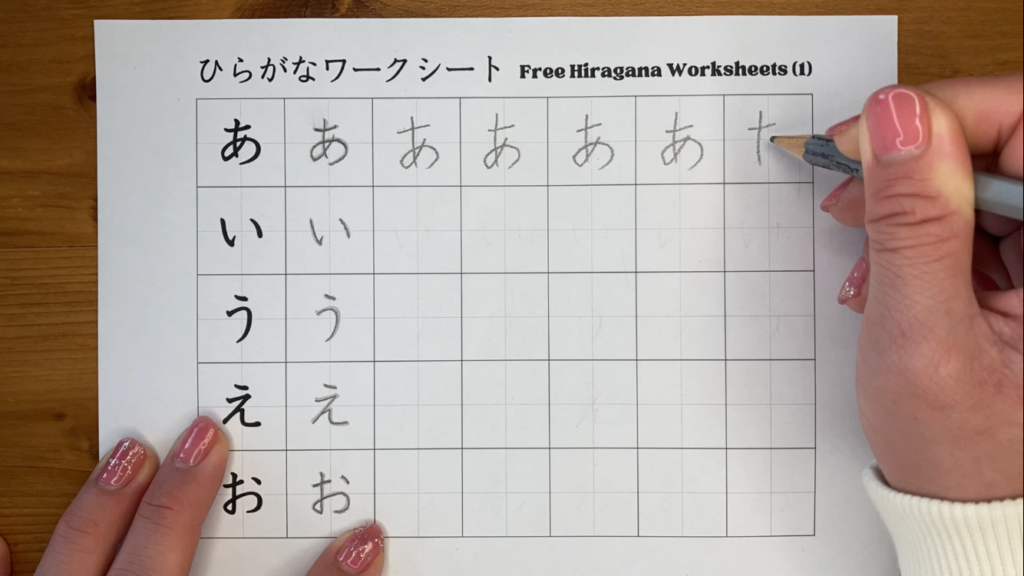 ひらがなワークシート Free Hiragana Worksheets (1)
あ あ あ あ あ あ
い い
う う
え え
お お